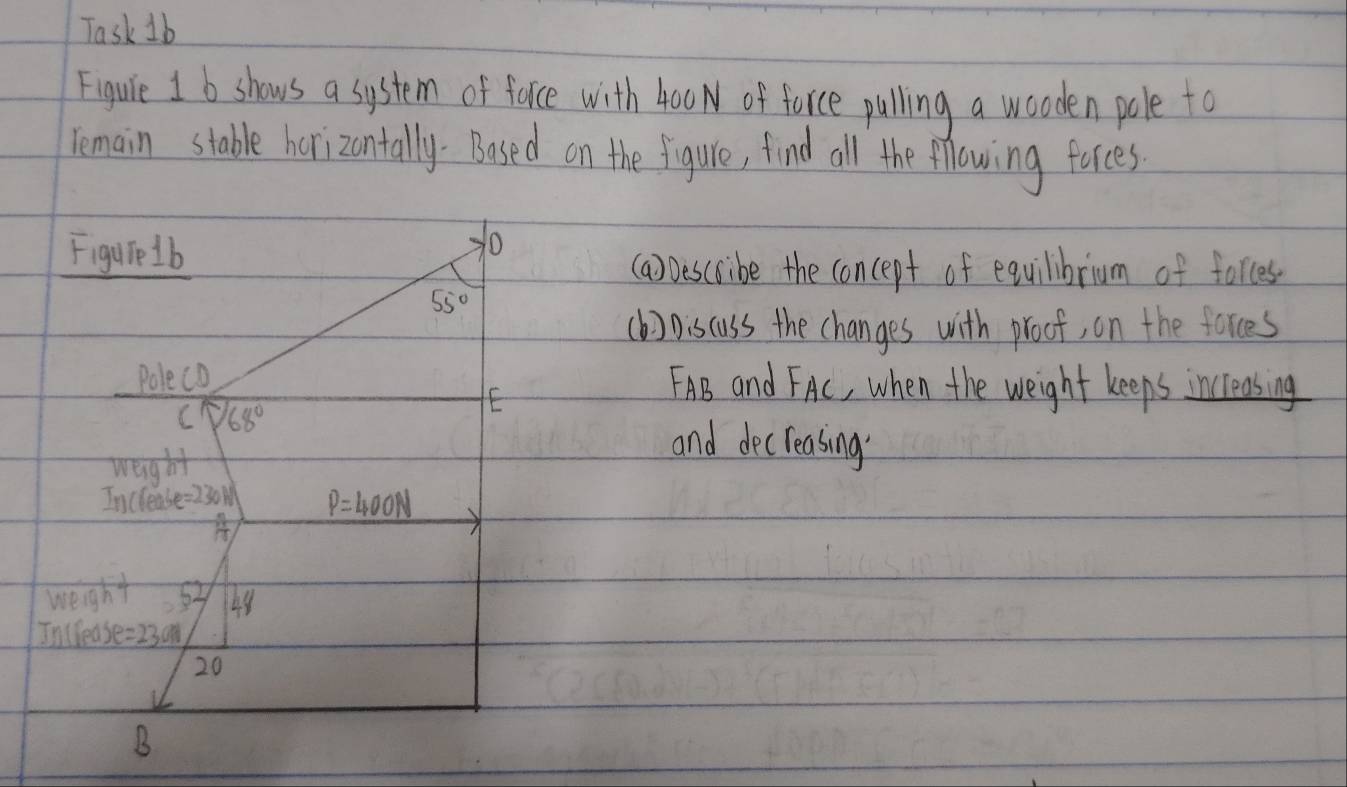 Task 1b
Figure 1 b shows a system of force with 400N of force pulling a wooden pole to
remain stable horizontally. Based on the figure, find all the fllowing forces.
Figure 1b
D
55°
Pole CD
C
68°
E
weight
Increase=230N
P=400N
A
weight
Increase=230N
52
48
20
B
(a) Describe the concept of equilibrium of forces.
(b) Discuss the changes with proof, on the forces
FAB and FAC, when the weight keeps increasing
and decreasing.